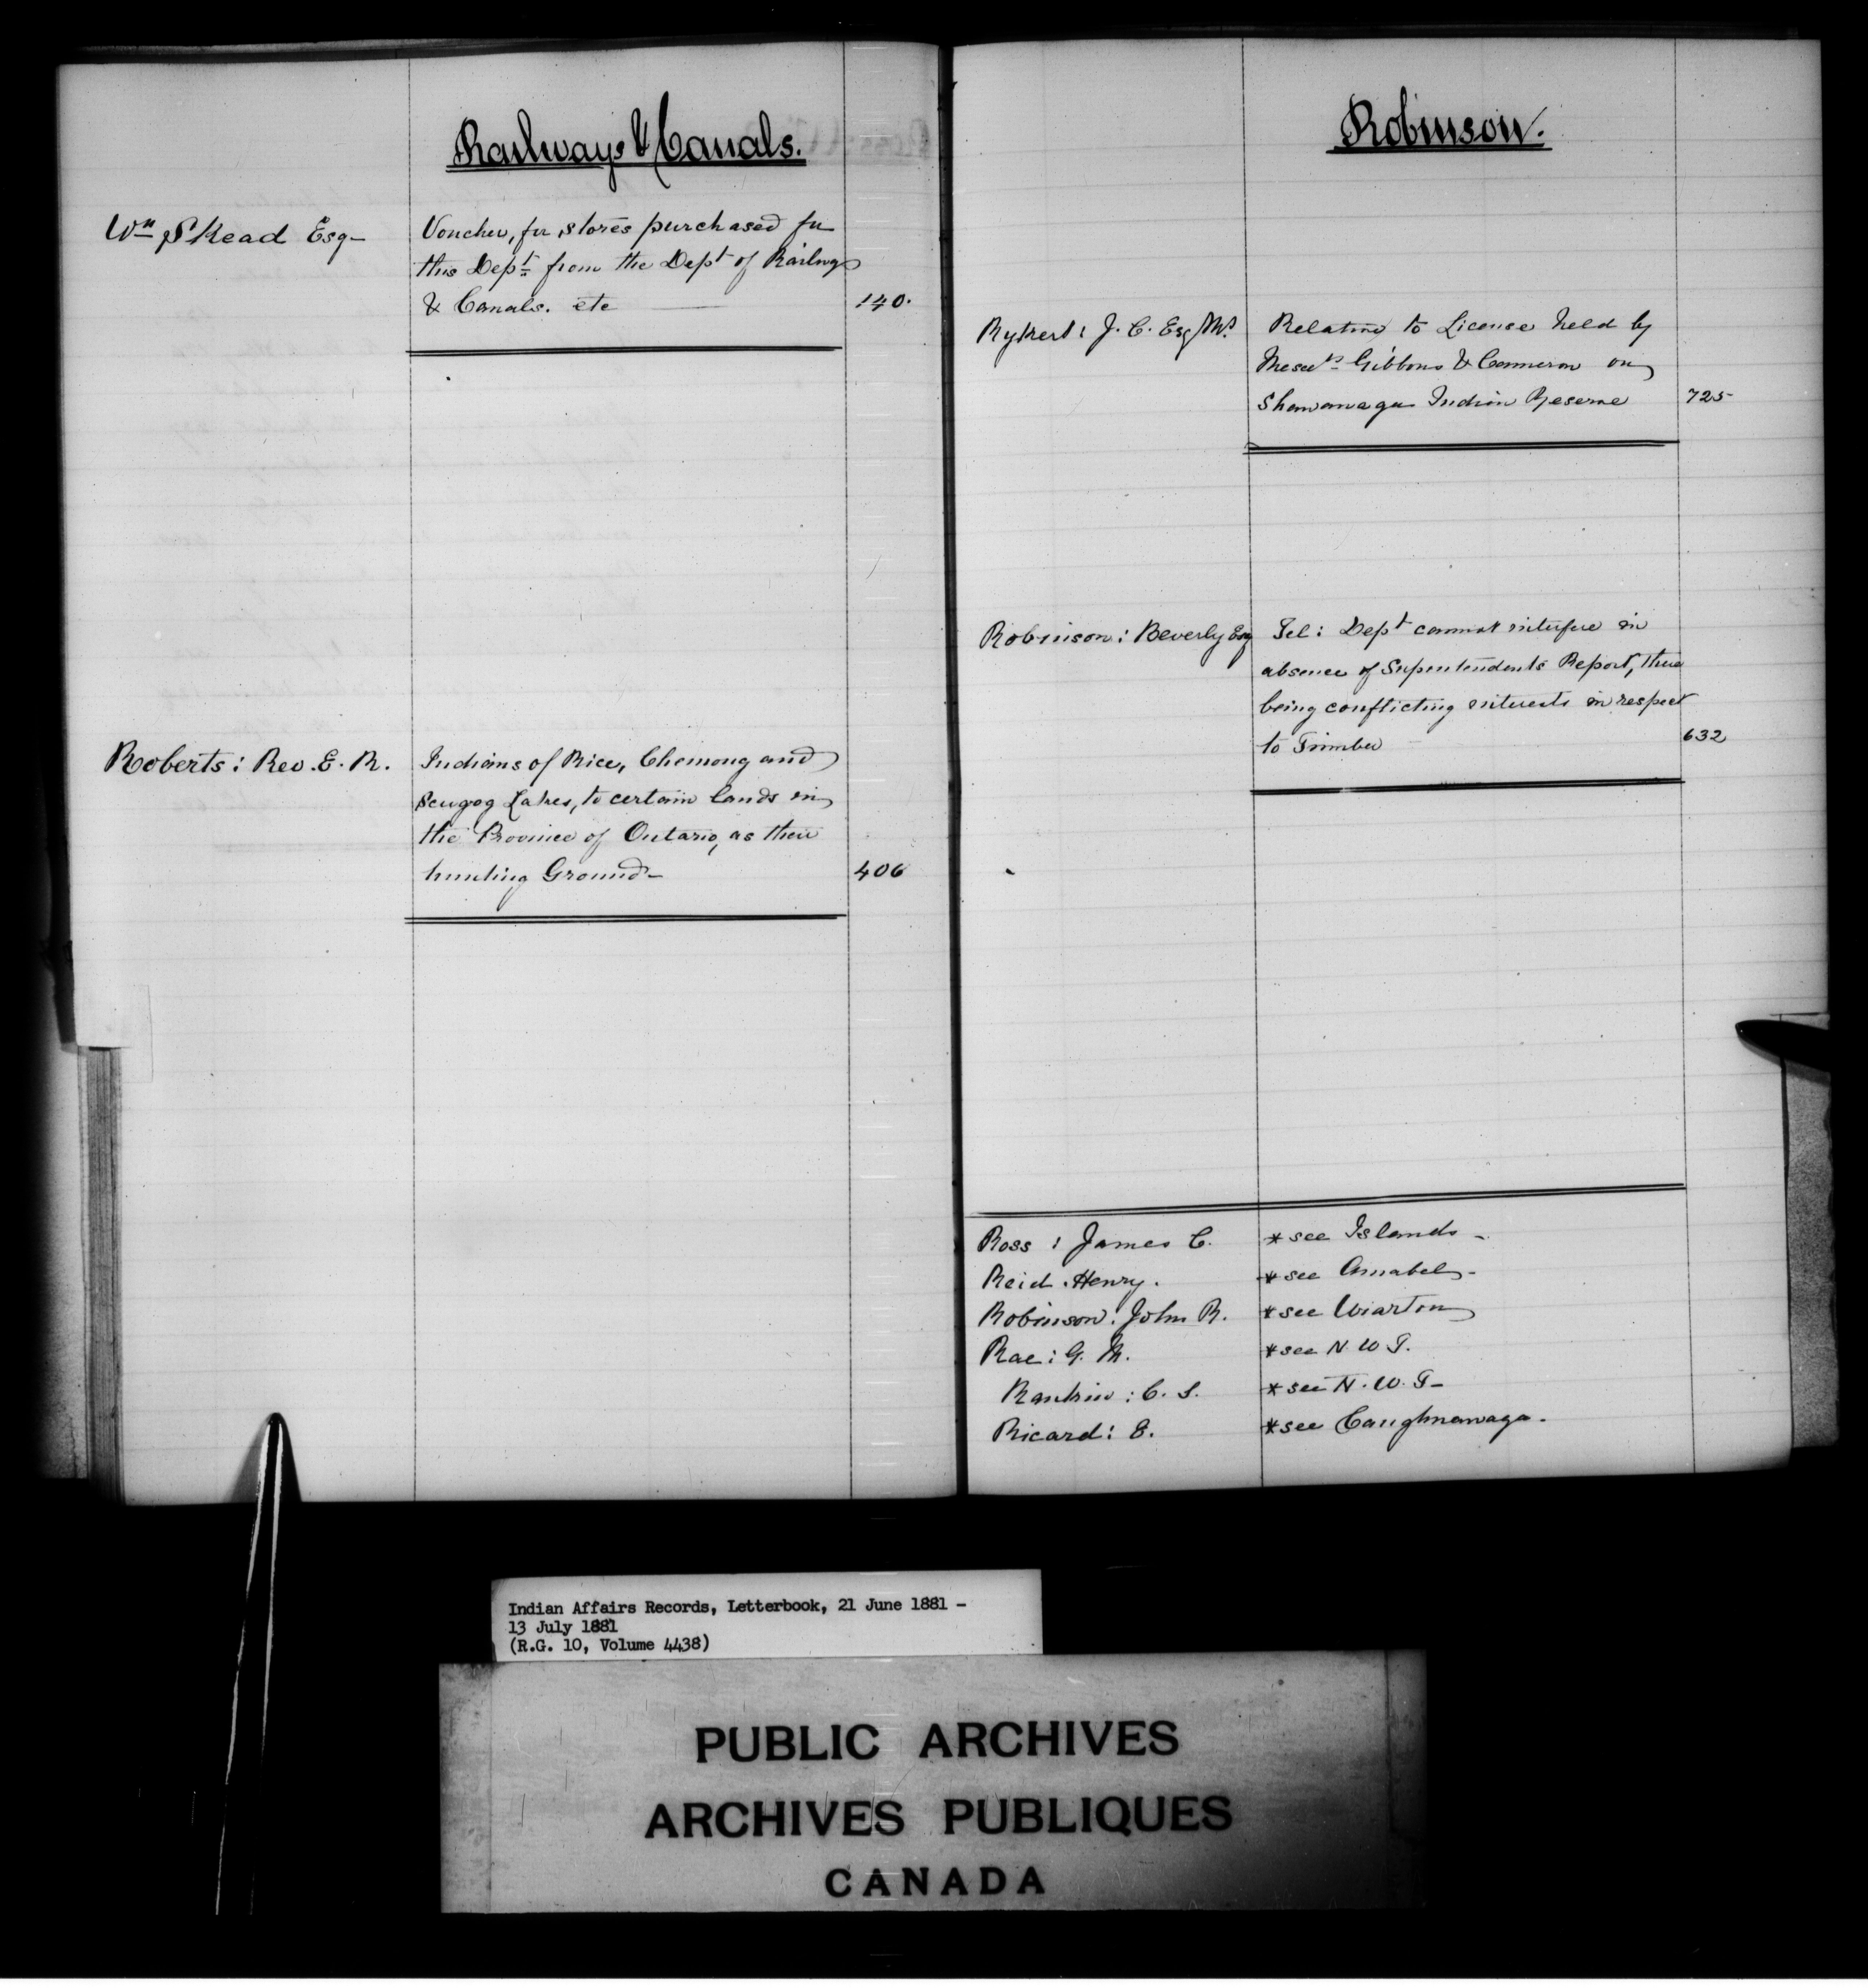 Railways & Canals.
Wm Skead Esq-
Voucher, for stores purchased for
this Dept from the Dept of Railways
& Canals. etc
140.
Roberts: Rev. E. R.
Indians of Rice, Chemong and
Scugog Lakes, to certain lands in
the Province of Ontario, as their
hunting Ground-
406
Robinson.
Rykert: J. C. Esq M.P.
Relative to License held by
Messrs Gibbons & Cameron on
Shawanaga Indian Reserve
725
Robinson: Beverly Esq
Tel: Dept cannot interfere in
absence of Superintendents Report, there
being conflicting interests in respect
to Timber
632
Ross: James C. *see Islands-
Reid. Henry. *see Amabel-
Robinson: John R. *see Wiarton
Rae: G. M. *see N. W. T.
Rankin: C. S. *see N. W. T-
Ricard: E. *see Caughnawaga-
Indian Affairs Records, Letterbook, 21 June 1881 -
13 July 1881
(R.G. 10, Volume 4438)
PUBLIC ARCHIVES
ARCHIVES PUBLIQUES
CANADA